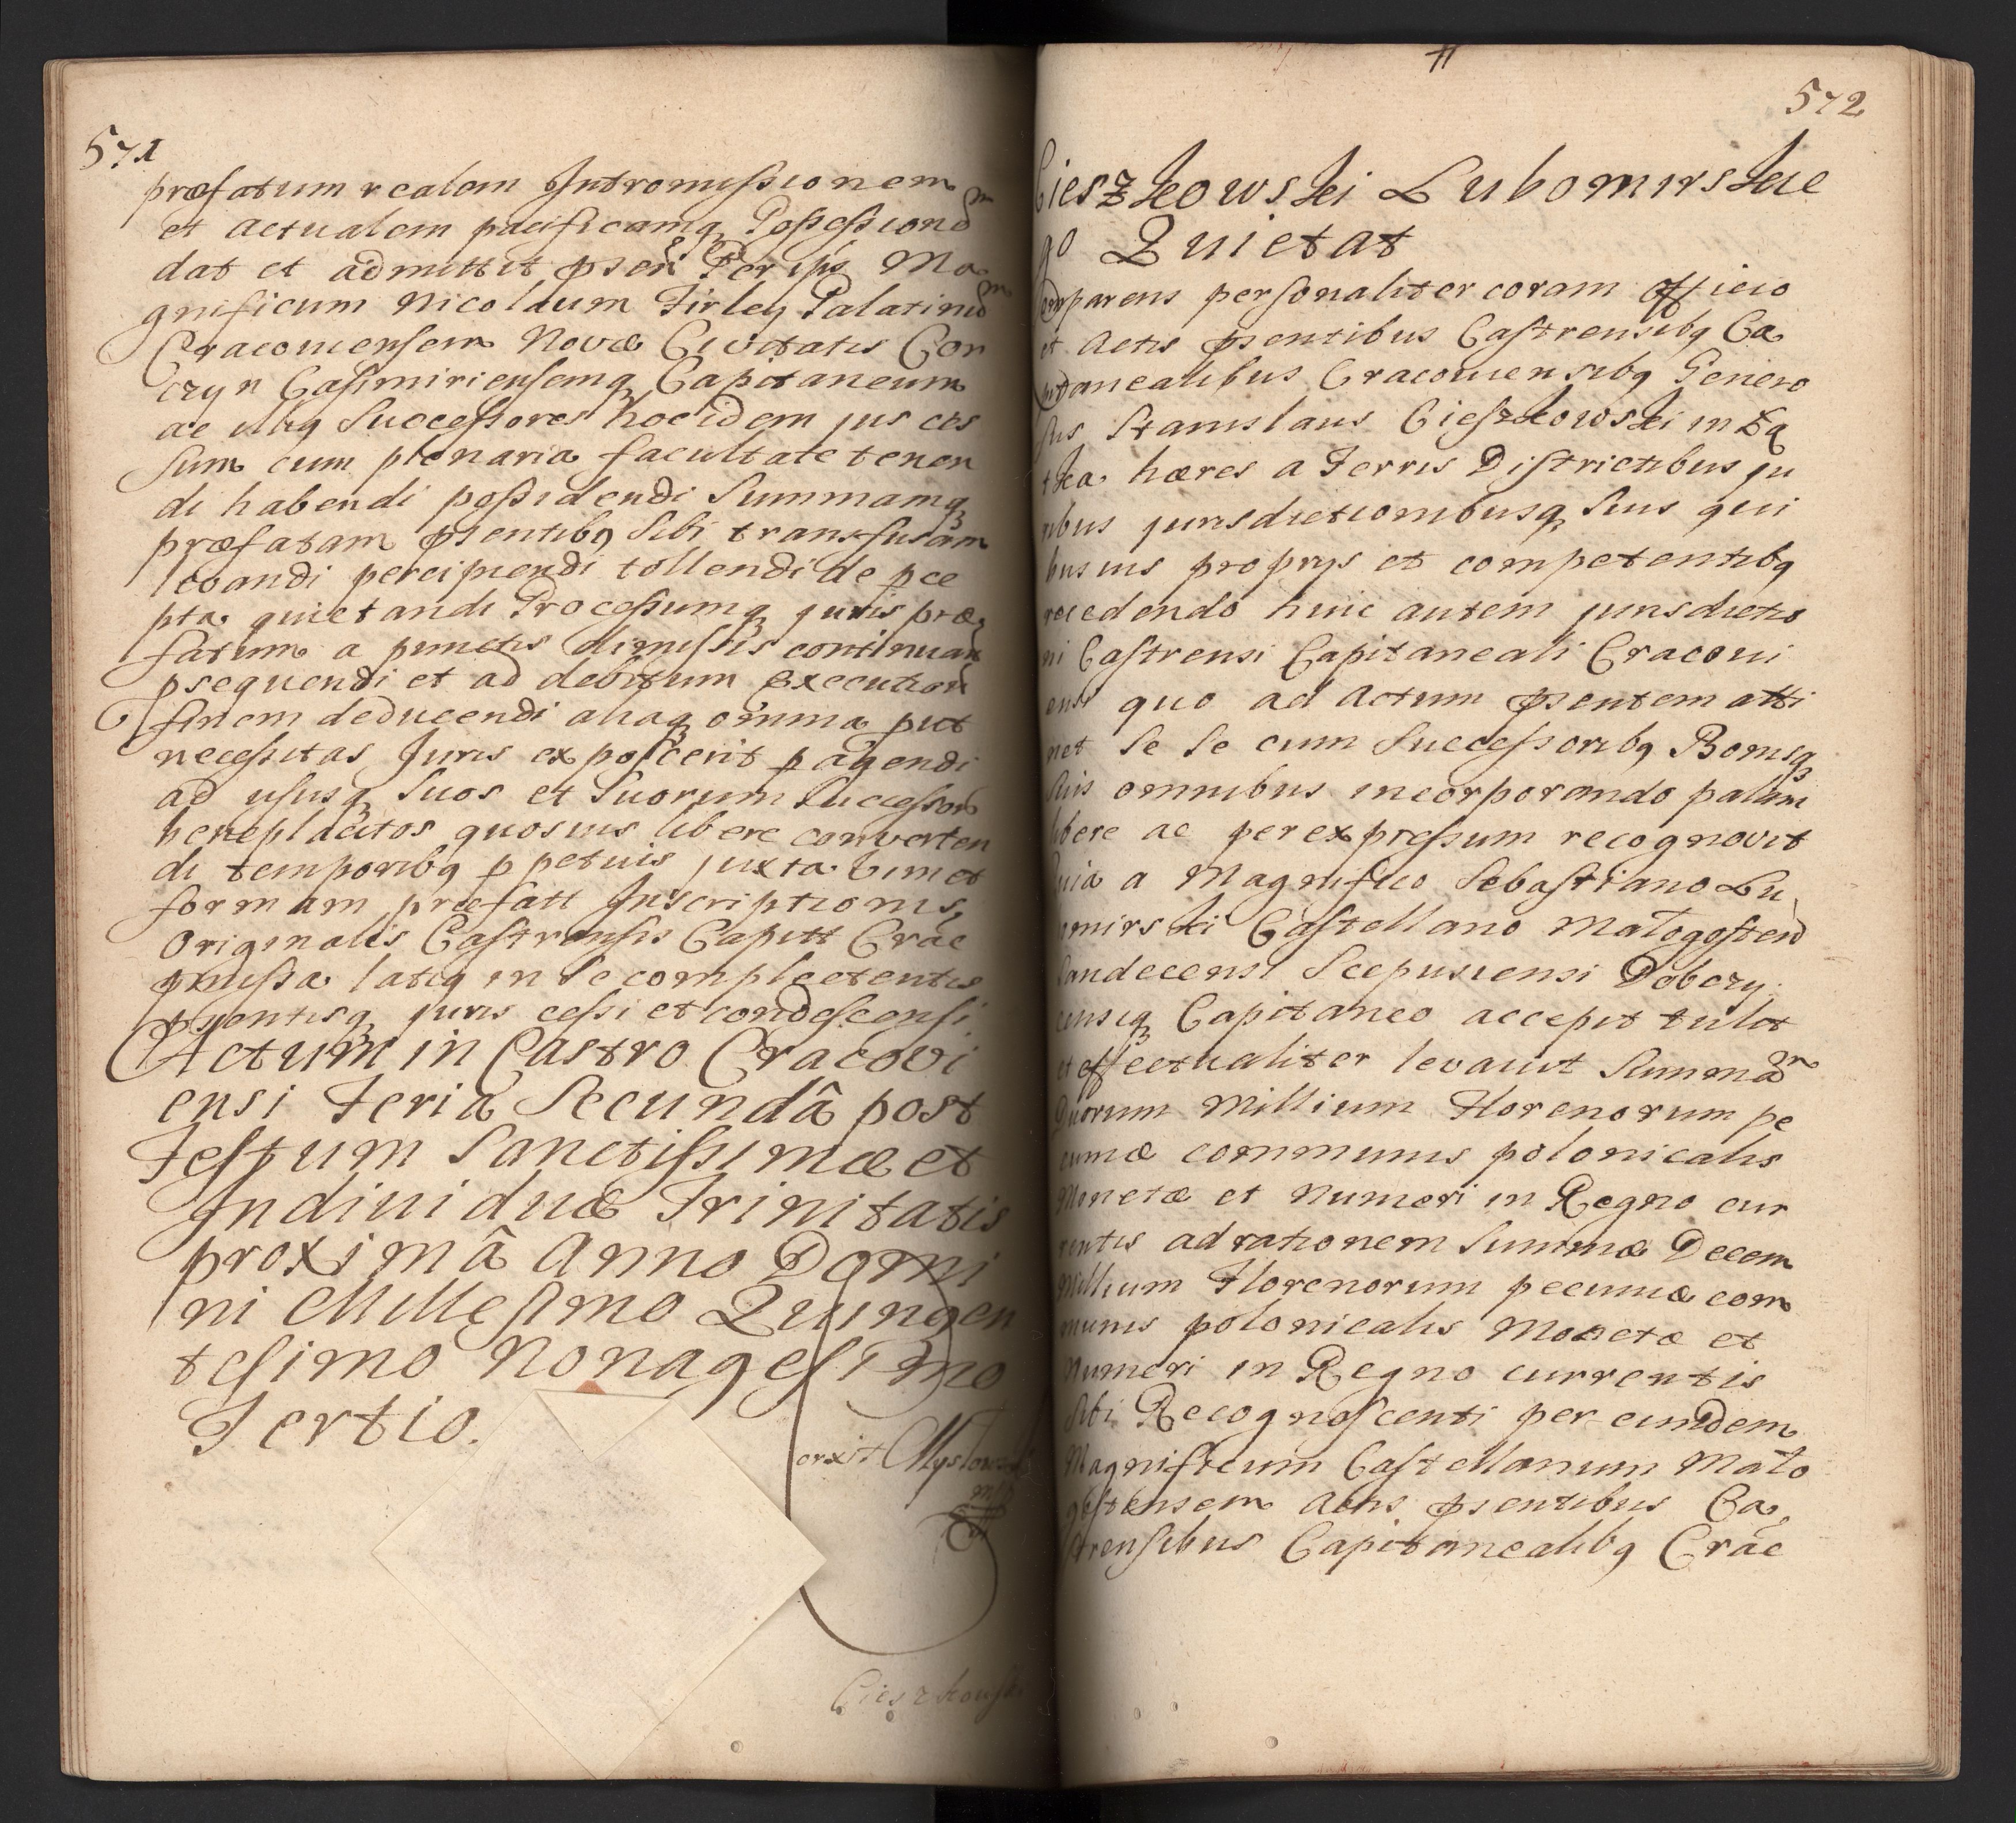 571
præfatum realem Intromissionem
et actualem pacificamq Possessionem
dat et admittit pser Ma
gnificum Nicolaum Firley Palatinum
Cracoviensem Novæ Civitatis Cor
czyn Casimiriensemq Capitaneum
ac illiq Successores hocidem jus ces
sum cum plenaria facultate tenen
di habendi possidendi Summamq
præfatam psentibq Sibi transfusam
levandi percipiendi tollendi de pce
pta quietandi Processumq juris præ
fatum a punctis dimissis continuan
psequendi et ad debitum execution
finem deducendi aliaq omnia put
necessitas Juris exposcerit p agendi
ad ususq Suos et Suorum Successorum
beneplacitos quosvis libere converten
di temporibq ppetuis juxta vim et
formam præfatt Inscriptionis
Originalis Castrensis Capitt Crac
pmissa latiq in Se complectentis
psentisq juris cessi et condescensi
Actum in Castro Cracovi
ensi Feria Secundâ post
Festum Sanctissimæ et
Individuæ Trinitatis
proximâ Anno Domi
ni Millesimo Quingen
tesimo Nonagesimo
Tertio.
mpp
Cieszkowski
572
Cieszkowski Lubomirskie
go Quietat
Comparens personaliter coram Officio
et Actis psentibus Castrensibq Ca
pitanealibus Cracoviensibq Genero
sus Stanislaus Cieszkowski in
hæres a Terris Districtibus ju
ribus jurisdictionibusq Suis qui
busvis proprys et competentibq
recedendo huic autem jurisdictio
ni Castrensi Capitaneali Cracovi
ensi quo ad Actum psentem atti
net Se Se cum Successoribq Bonisq
Suis omnibus incorporando palam
libere ac per expressum recognovit
Quia a Magnifico Sebastiano Lu
bomirski Castellano Małogosten
Sandecensi Scepusiensi Dobczy
censiq Capitaneo accepit tulit
et effectualiter levavit Summam
Duorum Millium Florenorum pe
cuniæ communis polonicalis
Monetæ et Numeri in Regno cur
rentis ad rationem Summæ Decem
Millium Florenorum pecuniæ com
munis polonicalis Monetæ et
Numeri in Regno currentis
Sibi Recognoscenti per eundem
Magnificum Castellanum Mało
gostensem Actis psentibus Ca
strensibus Capitanealibq Crac